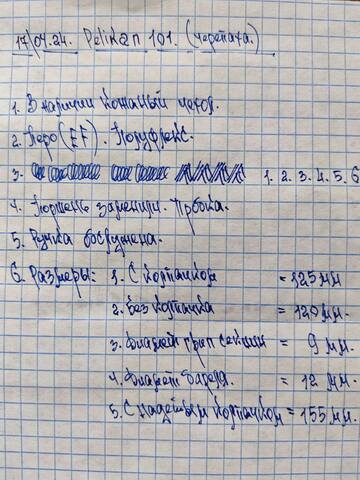 17/04.24. Pelikan 101. (черепаха.)
1. В наличии кожаный чехол.
2. Перо (EF). Полуфлекс.
3. 1. 2. 3. 4. 5. 6
4. Поршень заменили. Пробка.
5. Ручка обслужена.
6. Размеры: 1. С колпачком = 125 мм
2. Без колпачка = 120 мм.
3. Диамет грип секции = 9 мм.
4. Диамет бареля. = 12 мм.
5. С надетым колпачком = 155 мм.